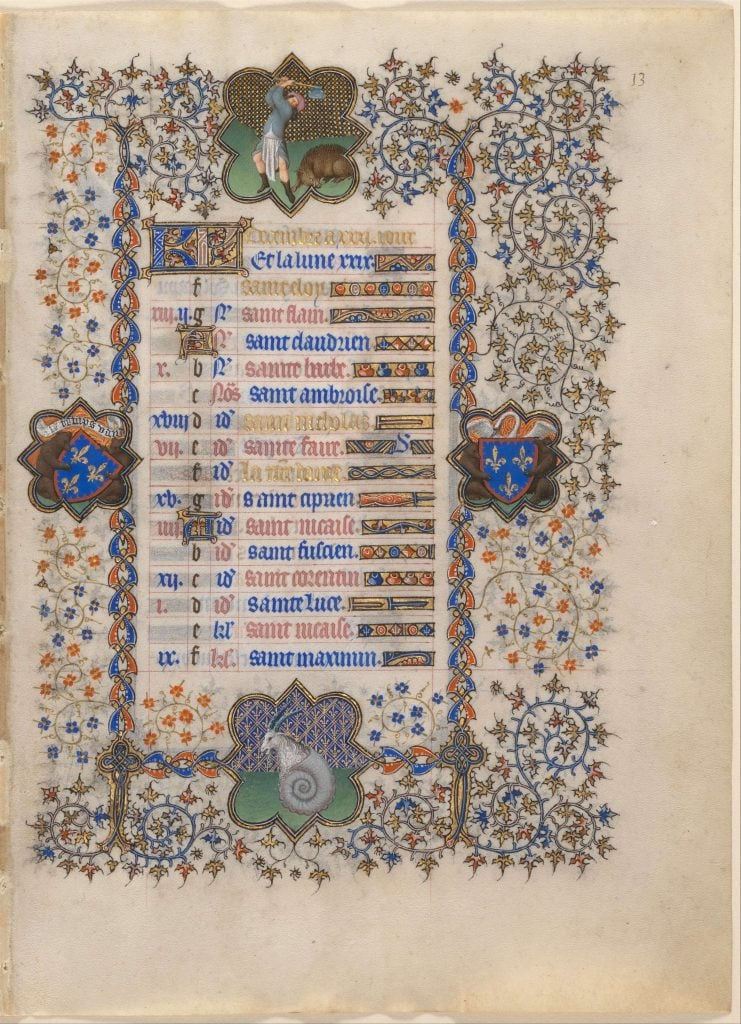 13
Decembre a xxxi. iour
Et la lune xxix
f saint eloy.
xiii. ii. g N. saint flain.
A N. saint claudien
x. b N. sainte barbe.
c Nōs saint ambroise.
xviii d id' saint nicholas
vii. e id' sainte faire.
f id'
xv. g id' saint ciprien
iiii. A id' saint nicaise.
b id' saint fuscien.
xii. c id' saint corentin
i. d id' sainte luce.
e kl' saint nicaise.
ix. f kl. saint maximin.
le temps venra